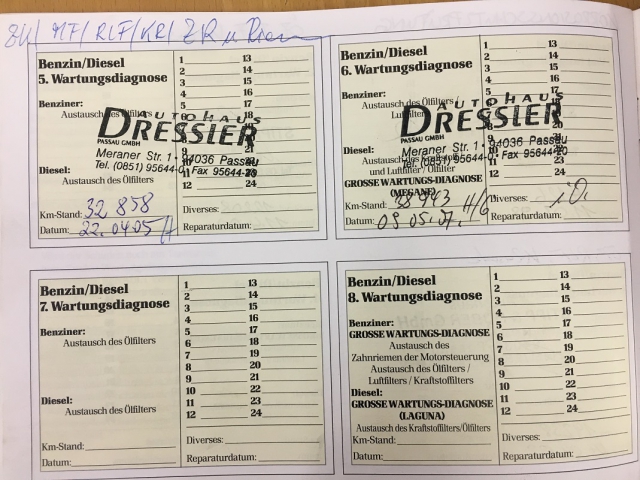 Benzin/Diesel
5. Wartungsdiagnose
Benziner:
Austausch des Ölfilters
Diesel:
Austausch des Ölfilters
Km-Stand: 32 858
Datum: 22.04.05
1 13
2 14
3 15
4 16
5 17
6 18
7 19
8 20
9 21
10 22
11 23
12 24
Diverses:
Reparaturdatum:
AUTOHAUS
DRESSLER
PASSAU GMBH
Meraner Str. 1 • 94036 Passau
Tel. (0851) 95644-0 • Fax 95644-20
Benzin/Diesel
6. Wartungsdiagnose
Benziner:
Austausch des Ölfilters/
Luftfilter
Diesel:
Austausch des Kraftstoff-
und Luftfilter/Ölfilter
GROSSE WARTUNGS-DIAGNOSE
(MEGANE)
Km-Stand: 38 943
Datum: 09.05.07.
1 13
2 14
3 15
4 16
5 17
6 18
7 19
8 20
9 21
10 22
11 23
12 24
Diverses: i.O.
Reparaturdatum:
AUTOHAUS
DRESSLER
PASSAU GMBH
Meraner Str. 1 • 94036 Passau
Tel. (0851) 95644-0 • Fax 95644-20
Benzin/Diesel
7. Wartungsdiagnose
Benziner:
Austausch des Ölfilters
Diesel:
Austausch des Ölfilters
Km-Stand:
Datum:
1 13
2 14
3 15
4 16
5 17
6 18
7 19
8 20
9 21
10 22
11 23
12 24
Diverses:
Reparaturdatum:
Benzin/Diesel
8. Wartungsdiagnose
Benziner:
GROSSE WARTUNGS-DIAGNOSE
Austausch des
Zahnriemen der Motorsteuerung
Austausch des Ölfilters /
Luftfilters / Kraftstoffilters
Diesel:
GROSSE WARTUNGS-DIAGNOSE
(LAGUNA)
Austausch des Kraftstoffilters/Ölfilters
Km-Stand:
Datum:
1 13
2 14
3 15
4 16
5 17
6 18
7 19
8 20
9 21
10 22
11 23
12 24
Diverses:
Reparaturdatum: